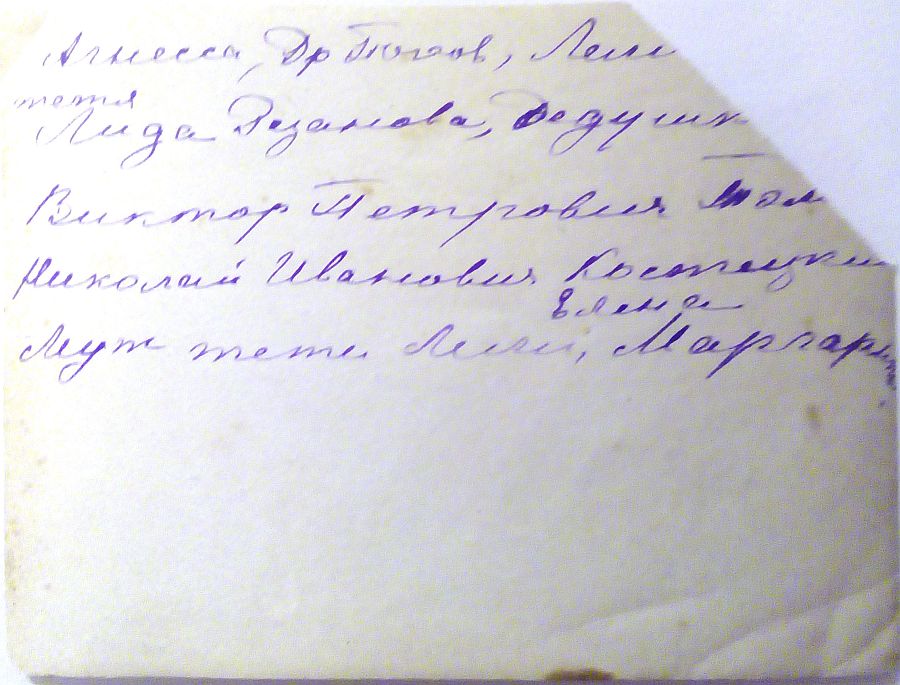 Агнесса, Др Тютов, Леля
тетя
Лида Рязанова, Дедушк
Виктор Петрович Том
Николай Иванович Костецкий
Елена
Муж тети Лели, Маргари